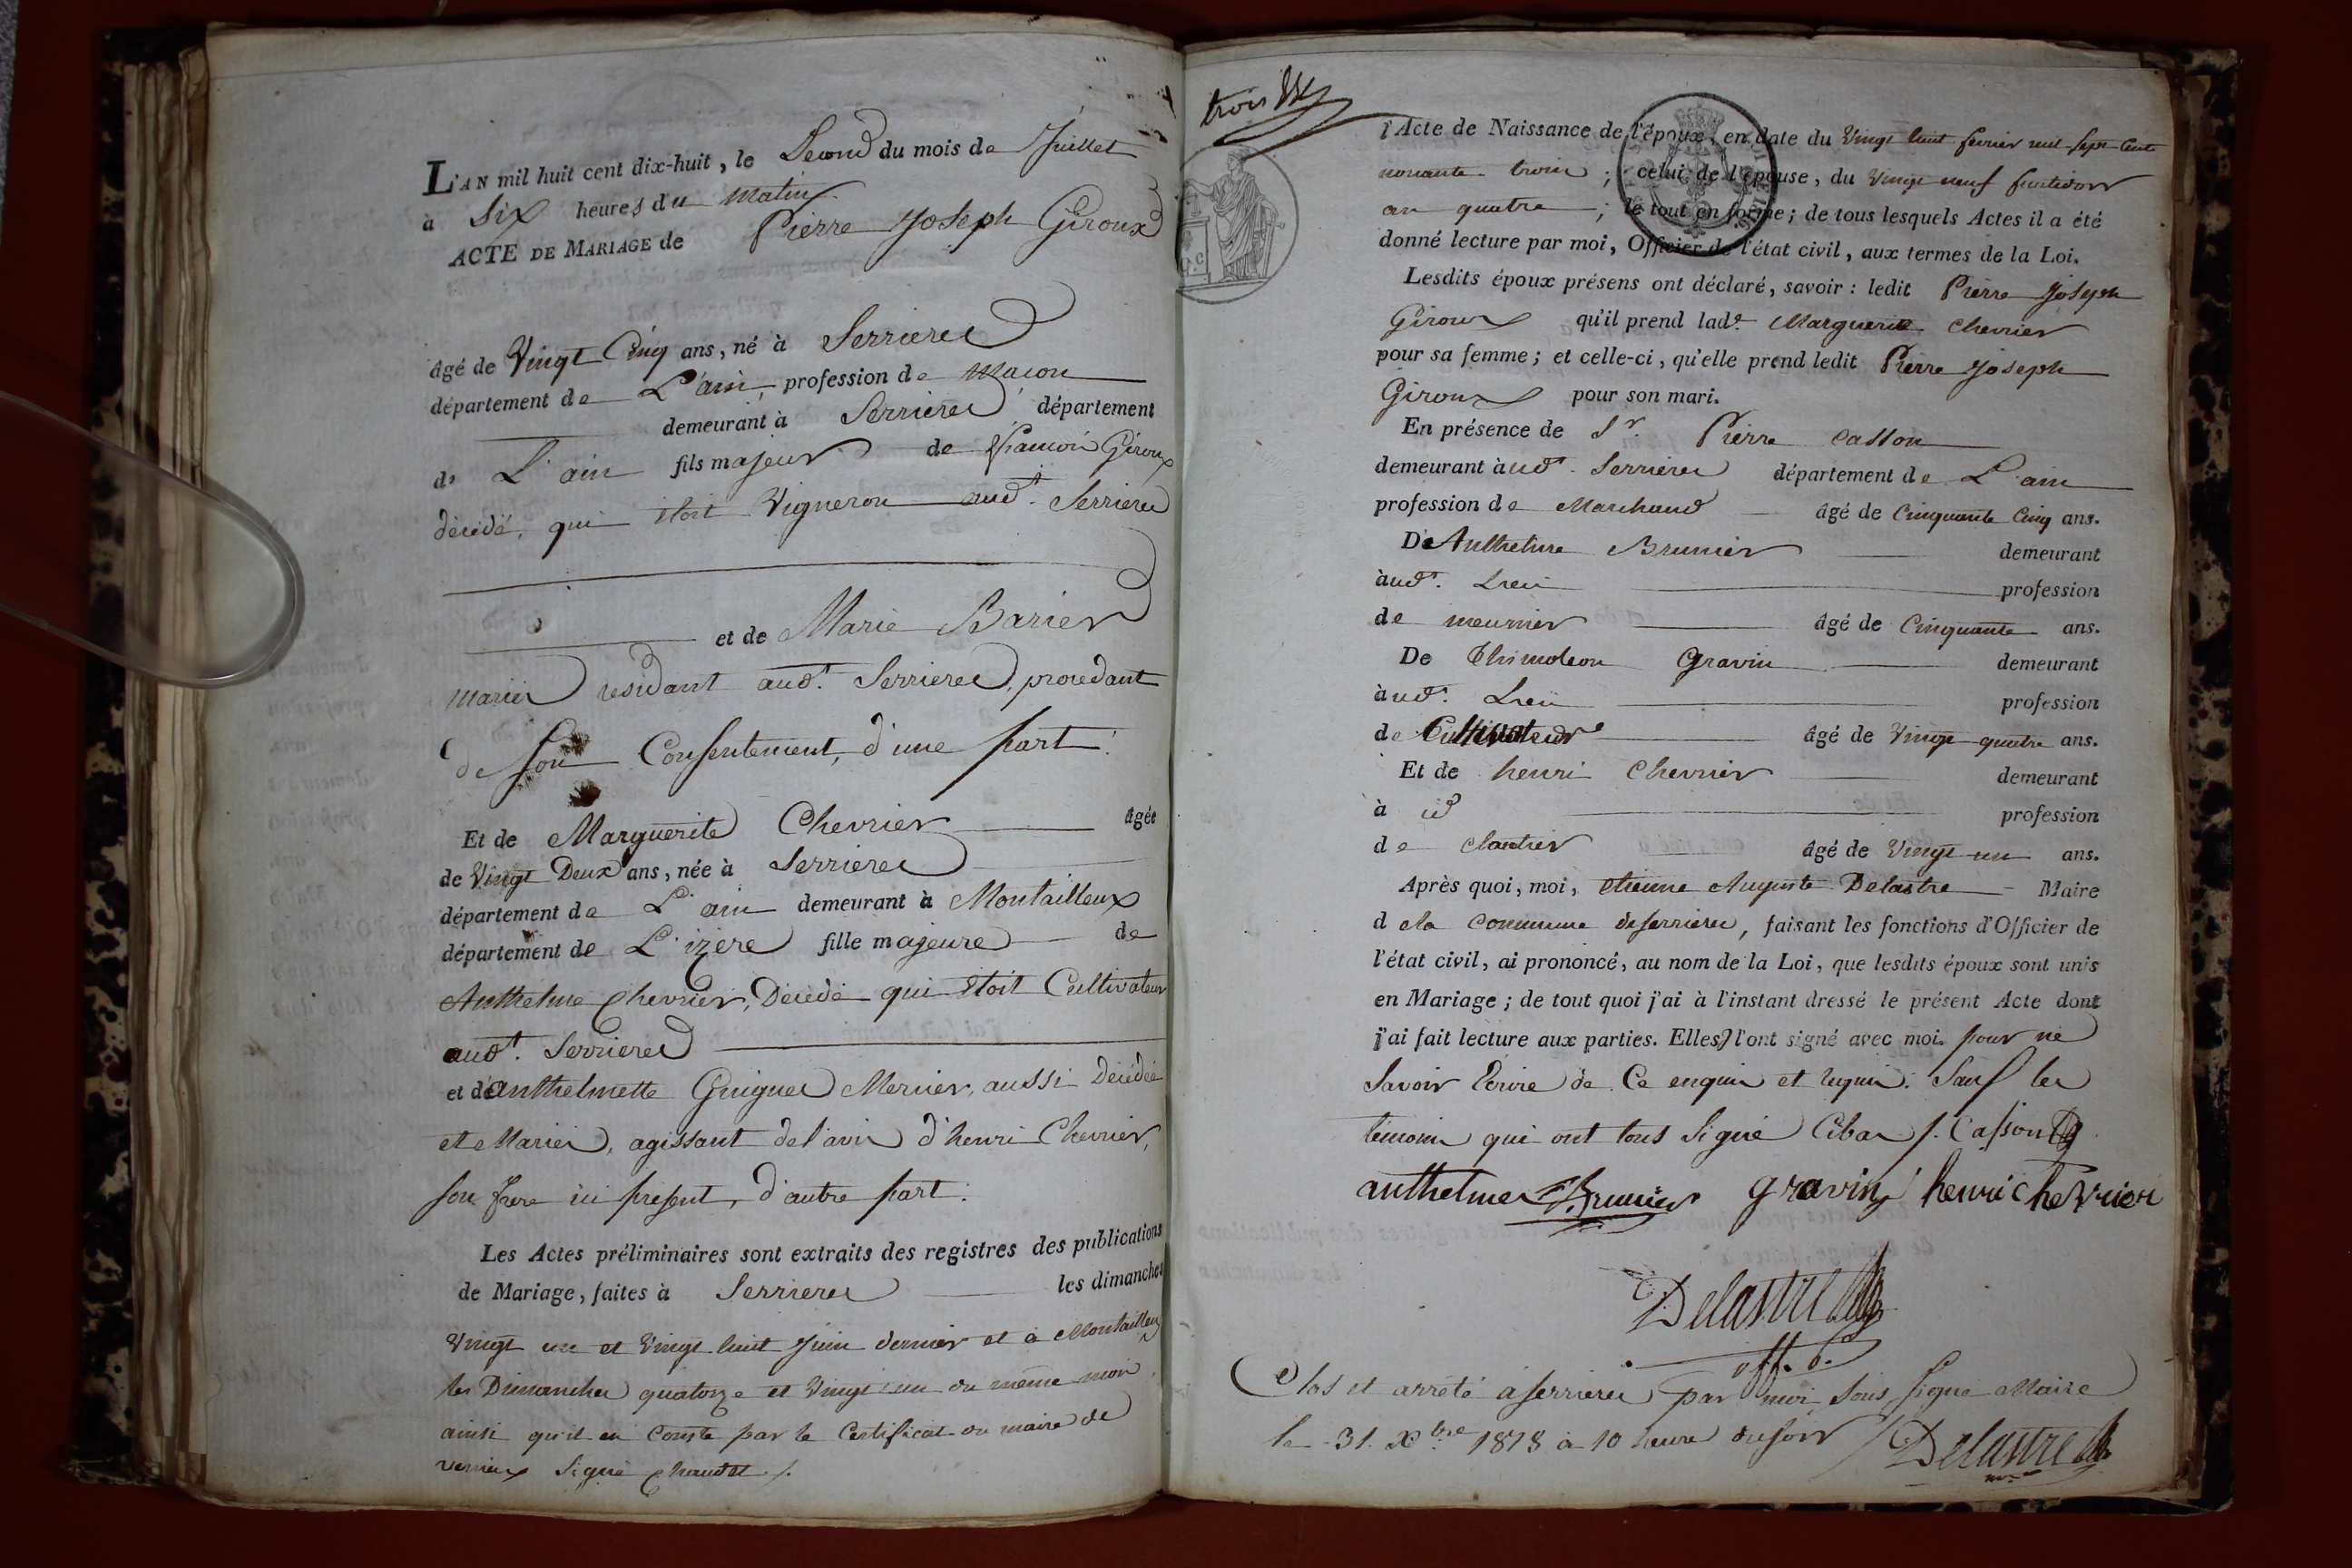 L'AN mil huit cent dix-huit, le Second du mois de Juillet
à Six heures du matin
ACTE DE MARIAGE de Pierre Joseph Giroux
âgé de Vingt Cinq ans, né à Serrieres
département de L'ain, profession de maçon
demeurant à Serrieres département
de L'ain fils majeur de françois Giroux
décédé, qui étoit Vigneron aud.t Serrieres
et de Marie Barier
mariés résidant aud.t Serrieres, procédant
de son Consentement, d'une part.
Et de Marguerite Chevrier âgée
de Vingt Deux ans, née à Serrieres
département de L'ain demeurant à Montailleux
département de L'izère fille majeure de
Anthelme Chevrier, Décédé qui étoit Cultivateur
aud.t Serrieres
et de anthelmette Guigues Mernier, aussi Décédée
et Mariés, agissant de l'avis d'henri Chevrier,
son frere ici présent, d'autre part.
Les Actes préliminaires sont extraits des registres des publications
de Mariage, faites à Serrieres les dimanches
Vingt un et Vingt huit Juin dernier et à Montailleux
les Dimanches quatorze et Vingt un du même mois
ainsi qu'il en conste par le Certificat du maire de
signé
trois
l'Acte de Naissance de l'époux, en date du Vingt huit fevrier mil sept Cent
nonante trois ; celui de l'épouse, du Vingt neuf
an quatre ; le tout en forme ; de tous lesquels Actes il a été
donné lecture par moi, Officier de l'état civil, aux termes de la Loi.
Lesdits époux présens ont déclaré, savoir : ledit Pierre Joseph
Giroux qu'il prend lad.e Marguerite Chevrier
pour sa femme ; et celle-ci, qu'elle prend ledit Pierre Joseph
Giroux pour son mari.
En présence de S.r Pierre Casson
demeurant à aud.t Serrieres département de L'ain
profession de Marchand âgé de Cinquante Cinq ans.
De Anthelme Brunier demeurant
à aud.t Lieu profession
de meunier âgé de Cinquante ans.
De Thimoleon Gravin demeurant
à aud.t Lieu profession
de Cultivateur âgé de Vingt quatre ans.
Et de henri Chevrier demeurant
à id profession
de âgé de Vingt un ans.
Après quoi, moi, etienne Auguste Delastre Maire
de la commune de serrieres, faisant les fonctions d'Officier de
l'état civil, ai prononcé, au nom de la Loi, que lesdits époux sont unis
en Mariage ; de tout quoi j'ai à l'instant dressé le présent Acte dont
j'ai fait lecture aux parties. Elles l'ont signé avec moi. pour ne
Savoir Ecrire de Ce enquis et requis. Sauf les
témoins qui ont tous Signé P. Casson
anthelme Brunier gravin henri chevrier
Delastre
off.
Clos et arrêté à serrieres par moi sous signé Maire
le 31 Xbre 1818 à 10 heure du soir Delastre